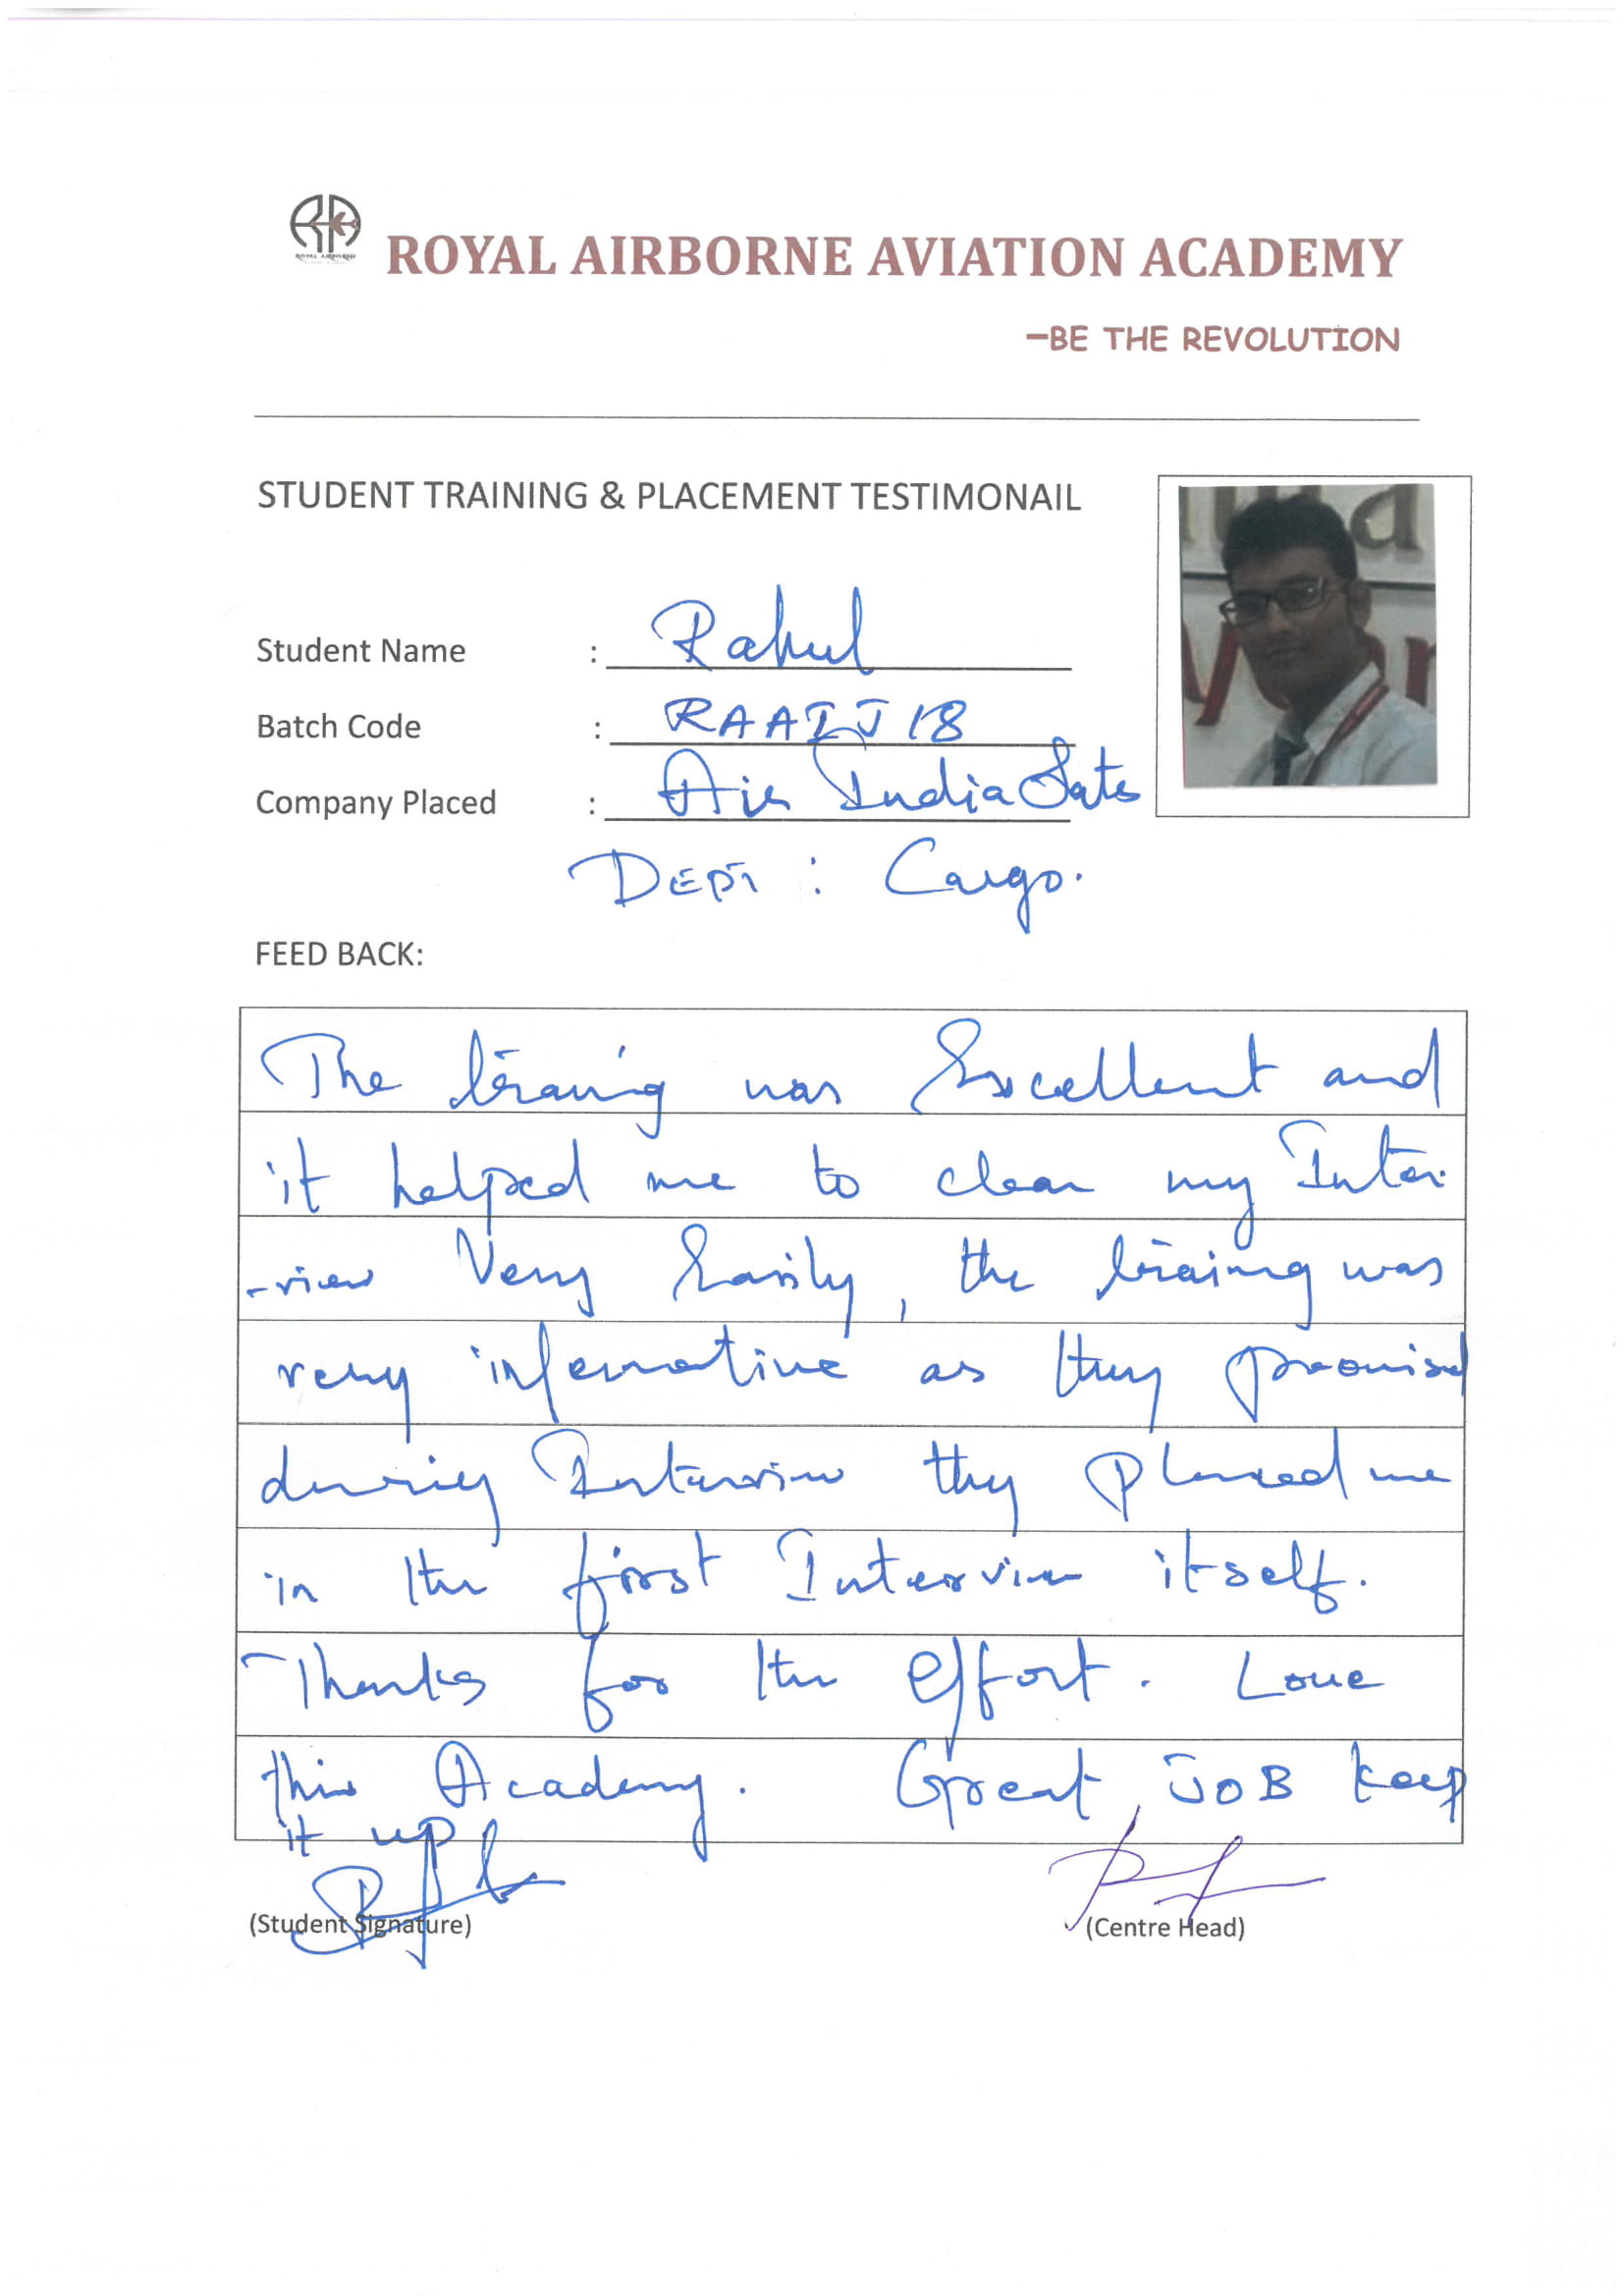 ROYAL AIRBORNE
ROYAL AIRBORNE AVIATION ACADEMY
–BE THE REVOLUTION
STUDENT TRAINING & PLACEMENT TESTIMONAIL
Student Name : Rahul
Batch Code : RAAIJ18
Company Placed : Air India Sats
DEPT : Cargo.
FEED BACK:
The traning was Excellent and
it helped me to clear my Inter
-view Very Easily, the traimg was
very informative as they promised
during Interview they Placed me
in the first Interview itself.
Thanks for the effort. Love
this Academy. Great JOB keep
it up
(Student Signature) (Centre Head)